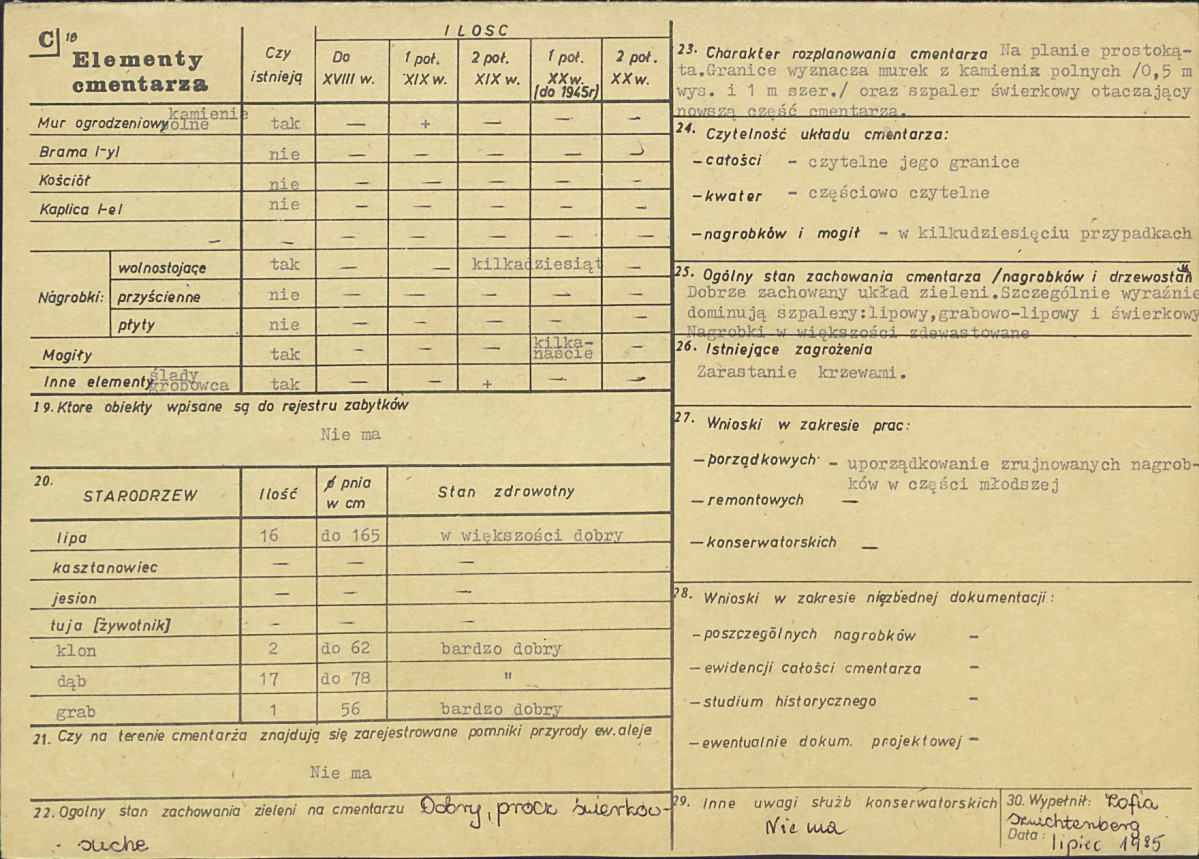 C 18
Elementy cmentarza
Czy istnieją
ILOSC
Do XVIII w.
1 poł. XIX w.
2 poł. XIX w.
1 poł. XX w. (do 1945r)
2 poł. XX w.
Mur ogrodzeniowy kamienie polne tak — + — — —
Brama /-y/ nie — — — — —
Kościół nie — — — — —
Kaplica /-e/ nie — — — — —
— — — — — — —
Nagrobki:
wolnostojące tak — — kilkadziesiąt —
przyścienne nie — — — — —
płyty nie — — — — —
Mogiły tak — — — kilka-naście —
Inne elementy ślady grobowca tak — — + — —
19. Ktore obiekty wpisane są do rejestru zabytków
Nie ma
20. STARODRZEW Ilość ø pnia w cm Stan zdrowotny
lipa 16 do 165 w większości dobry
kasztanowiec — — —
jesion — — —
tuja [żywotnik] — — —
klon 2 do 62 bardzo dobry
dąb 17 do 78 "
grab 1 56 bardzo dobry
21. Czy na terenie cmentarza znajdują się zarejestrowane pomniki przyrody ew. aleje
Nie ma
22. Ogolny stan zachowania zieleni na cmentarzu Dobry, procz świerków-
suche
23. Charakter rozplanowania cmentarza Na planie prostoką-
ta.Granice wyznacza murek z kamienia polnych /0,5 m
wys. i 1 m szer./ oraz szpaler świerkowy otaczający
nowszą część cmentarza.
24. Czytelność układu cmentarza:
— całości - czytelne jego granice
— kwater - częściowo czytelne
— nagrobków i mogił - w kilkudziesięciu przypadkach
25. Ogólny stan zachowania cmentarza /nagrobków i drzewostan
Dobrze zachowany układ zieleni.Szczególnie wyraźnie
dominują szpalery:lipowy,grabowo-lipowy i świerkowy
Nagrobki w większości zdewastowane
26. Istniejące zagrożenia
Zarastanie krzewami.
27. Wnioski w zakresie prac:
— porządkowych - uporządkowanie zrujnowanych nagrob-
ków w części młodszej
— remontowych —
— konserwatorskich —
28. Wnioski w zakresie niezbędnej dokumentacji:
— poszczególnych nagrobków -
— ewidencji całości cmentarza -
— studium historycznego -
— ewentualnie dokum. projektowej -
29. Inne uwagi służb konserwatorskich
Nie ma
30. Wypełnił: Zofia
Szuchtenberg
Data: lipiec 1985